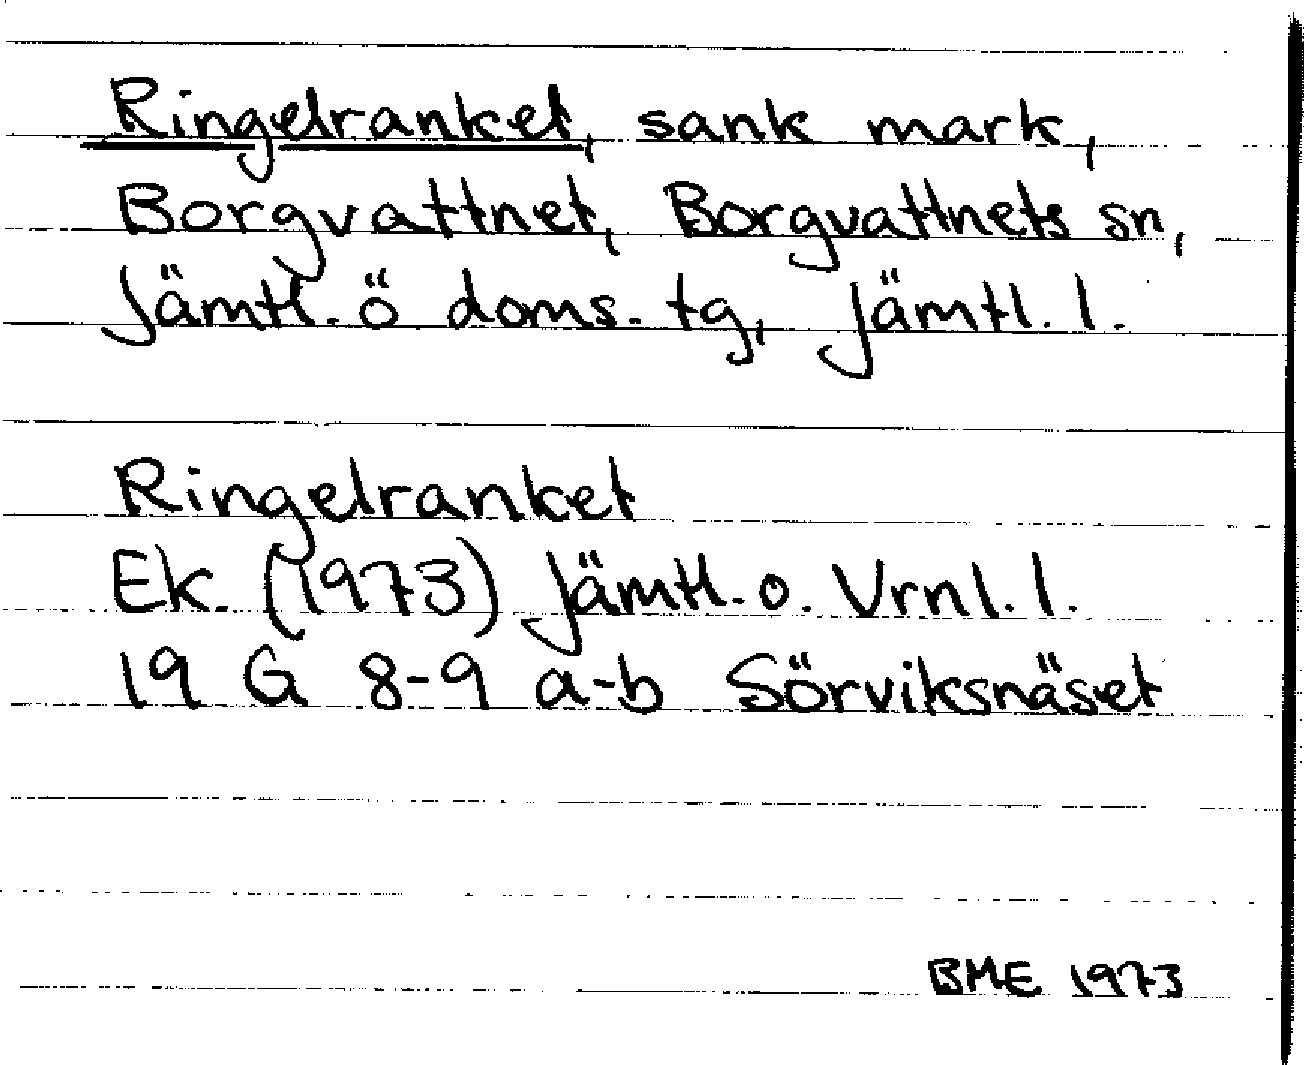 Ringelranket, sank mark,
Borgvattnet, Borgvattnets sn,
Jämtl. ö doms. tg, Jämtl. l.
Ringelranket
Ek. (1973) Jämtl. o. Vrnl. l.
19 G 8-9 a-b Sörviksnäset
BME 1973